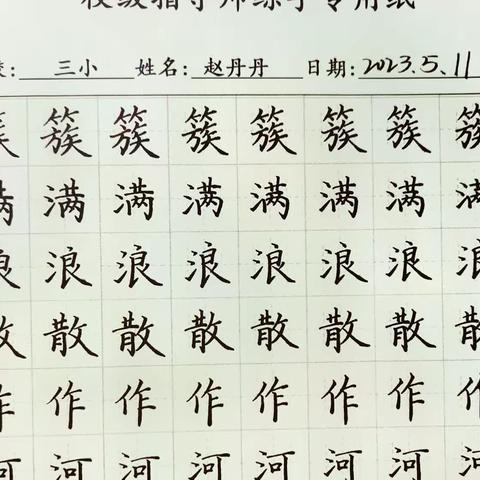 校级指导师练字专用纸
校: 三小 姓名: 赵丹丹 日期: 2023.5.11
簇 簇 簇 簇 簇 簇 簇 簇
满 满 满 满 满 满 满 满
浪 浪 浪 浪 浪 浪 浪 浪
散 散 散 散 散 散 散 散
作 作 作 作 作 作 作 作
河 河 河 河 河 河 河 河